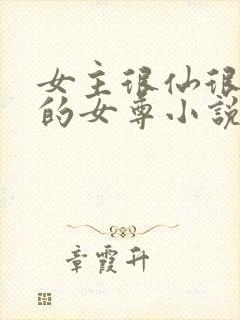 女主很仙很
的女尊小説
章霞升